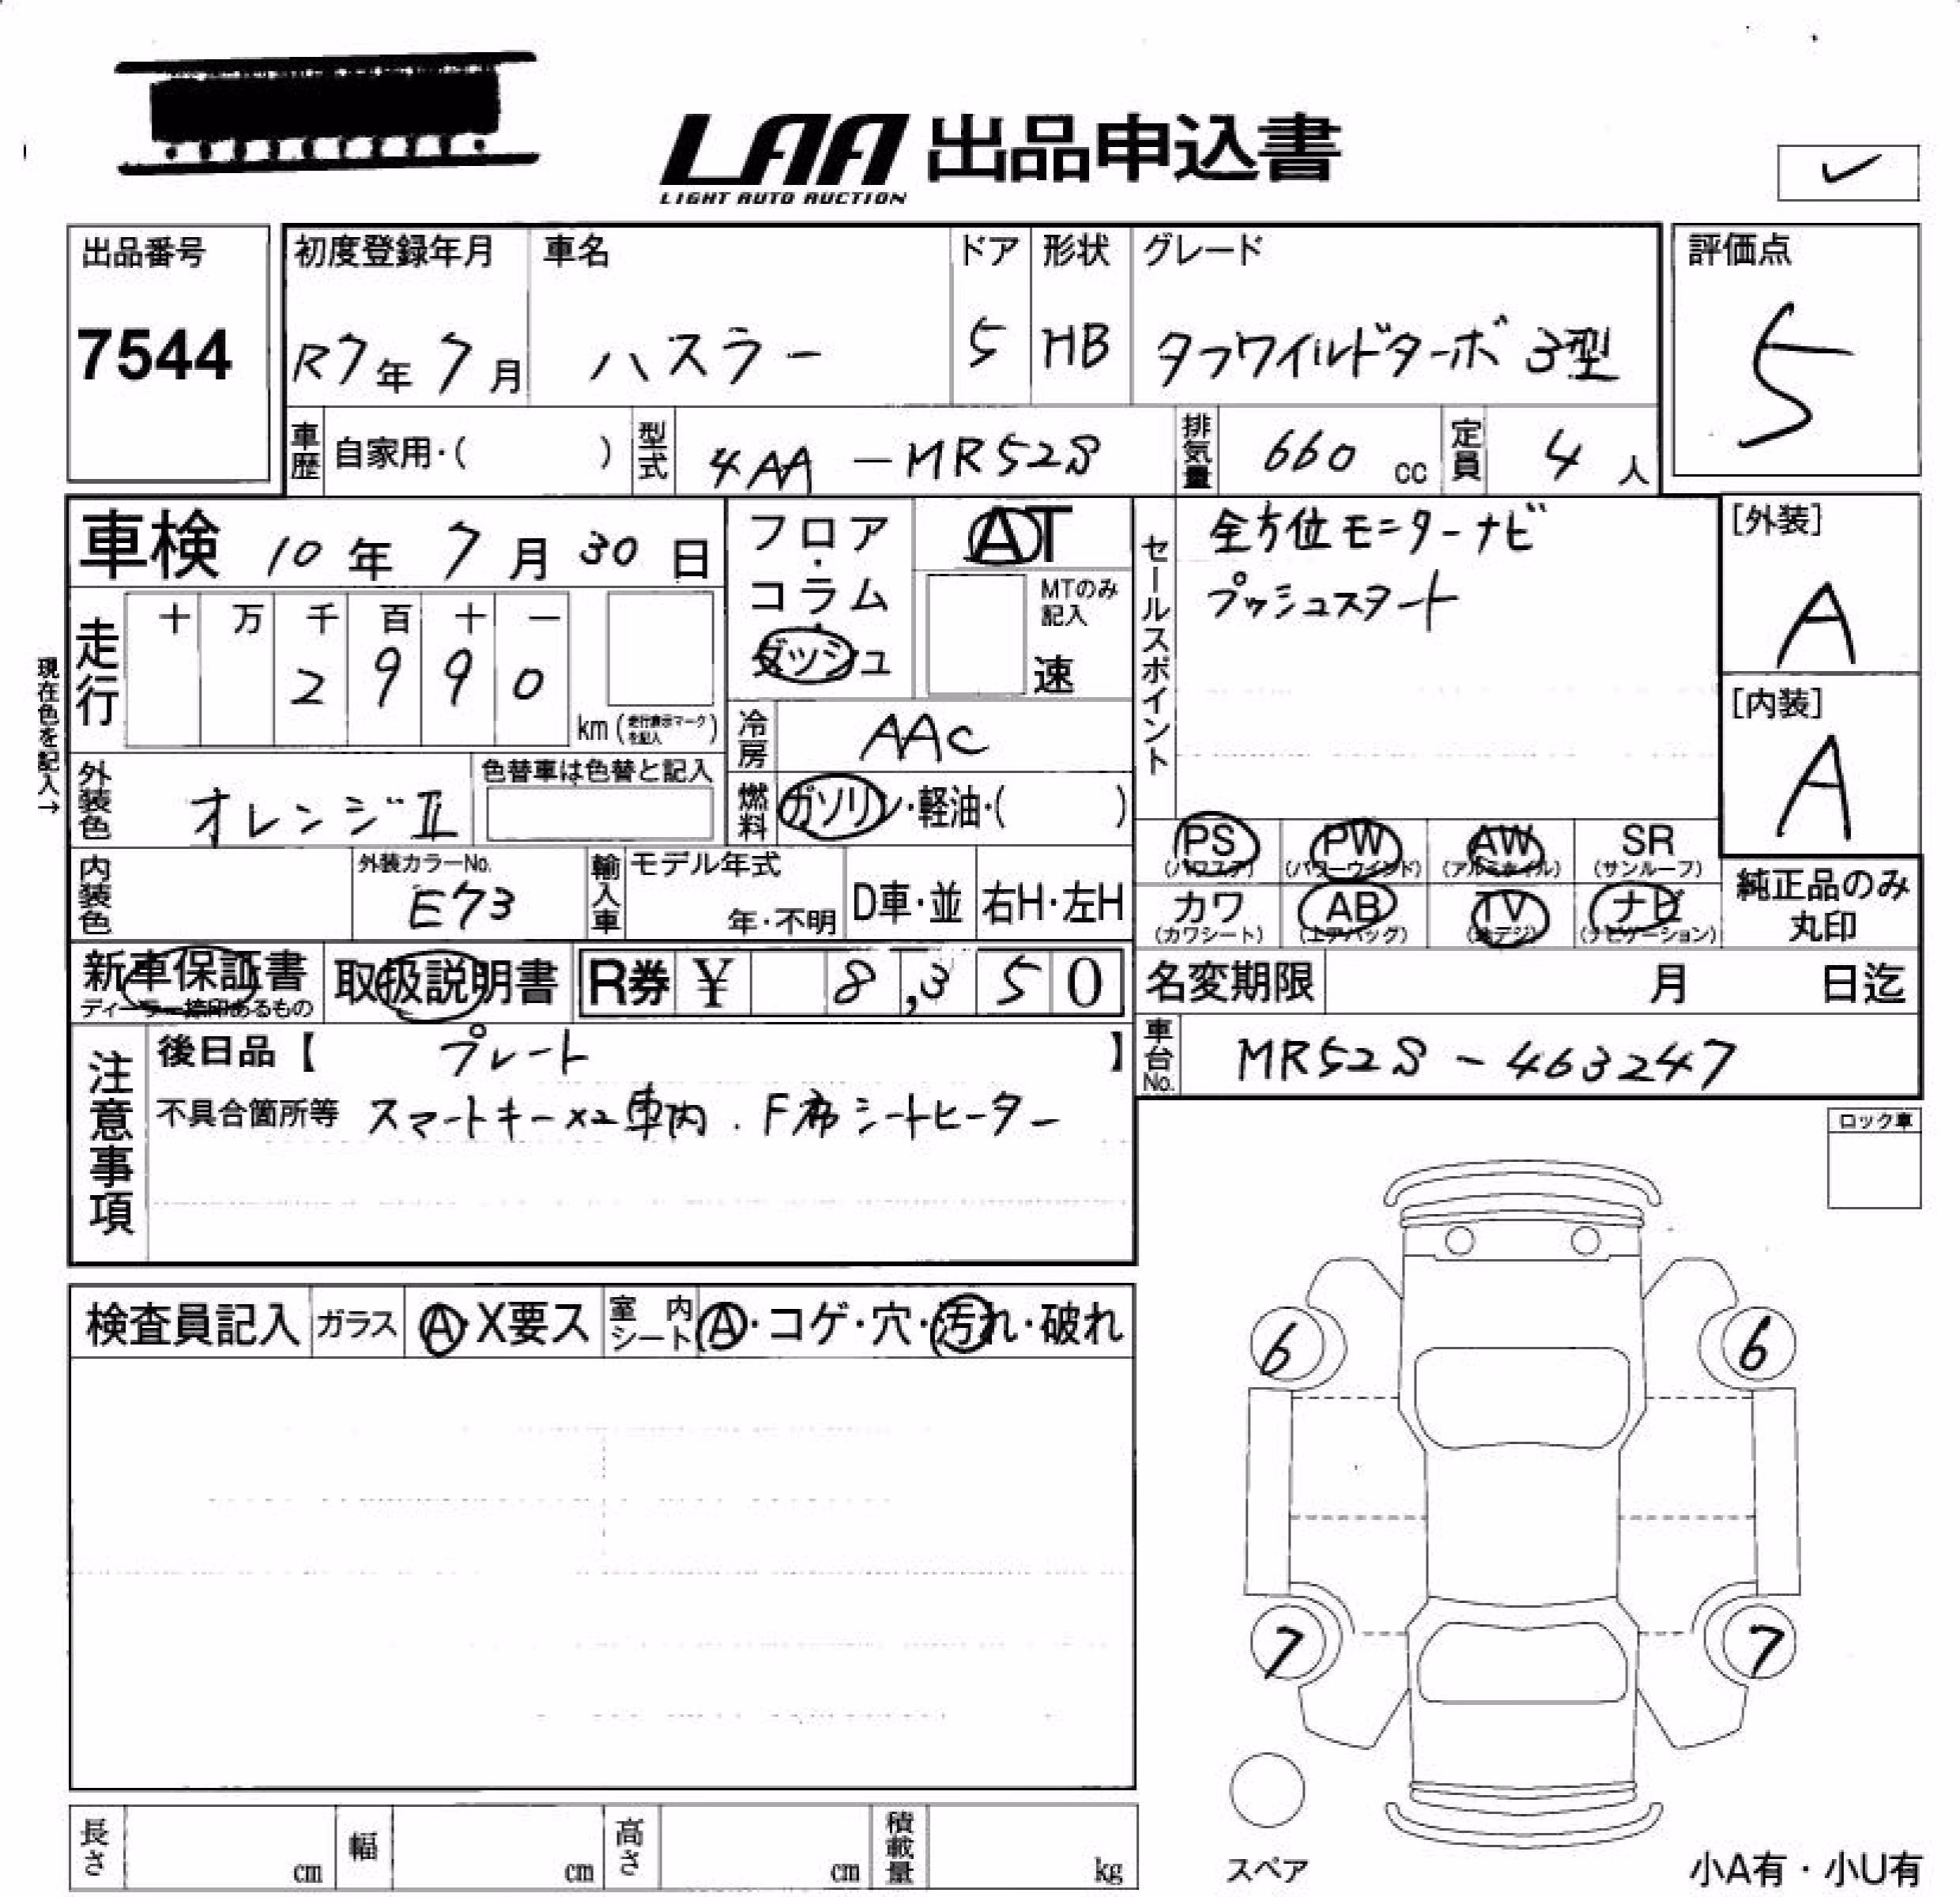 LAA 出品申込書
LIGHT AUTO AUCTION
出品番号
7544
初度登録年月 車名 ドア 形状 グレード
R7年 7月 ハスラー 5 HB タフワイルドターボ 3型
評価点
5
車歴 自家用・( ) 型式 4AA-MR52S 排気量 660 cc 定員 4 人
車検 10年 7月 30日
フロア・コラム・ダッシュ
AT
MTのみ記入
速
セールスポイント
全方位モニターナビ
プッシュスタート
[外装]
A
[内装]
A
現在色を記入→
走行
十 万 千 百 十 一
2 9 9 0
km (走行表示マークを記入)
冷房 AAC
燃料 ガソリン・軽油・( )
外装色 オレンジII
色替車は色替と記入
内装色
外装カラーNo.
E73
輸入車 モデル年式
年・不明 D車・並 右H・左H
PS (パワステ) PW (パワーウインド) AW (アルミホイル) SR (サンルーフ)
カワ (カワシート) AB (エアバッグ) TV (地デジ) ナビ (ナビゲーション)
純正品のみ
丸印
新車保証書
ディーラー捺印あるもの
取扱説明書
R券 ¥ 8,350
名変期限 月 日迄
車台No. MR52S-463247
注意事項
後日品【 プレート 】
不具合箇所等 スマートキー×2車内.F席シートヒーター
ロック車
検査員記入 ガラス A・X要ス 室内シート A・コゲ・穴・汚れ・破れ
6 6
7 7
スペア
長さ cm 幅 cm 高さ cm 積載量 kg
小A有・小U有